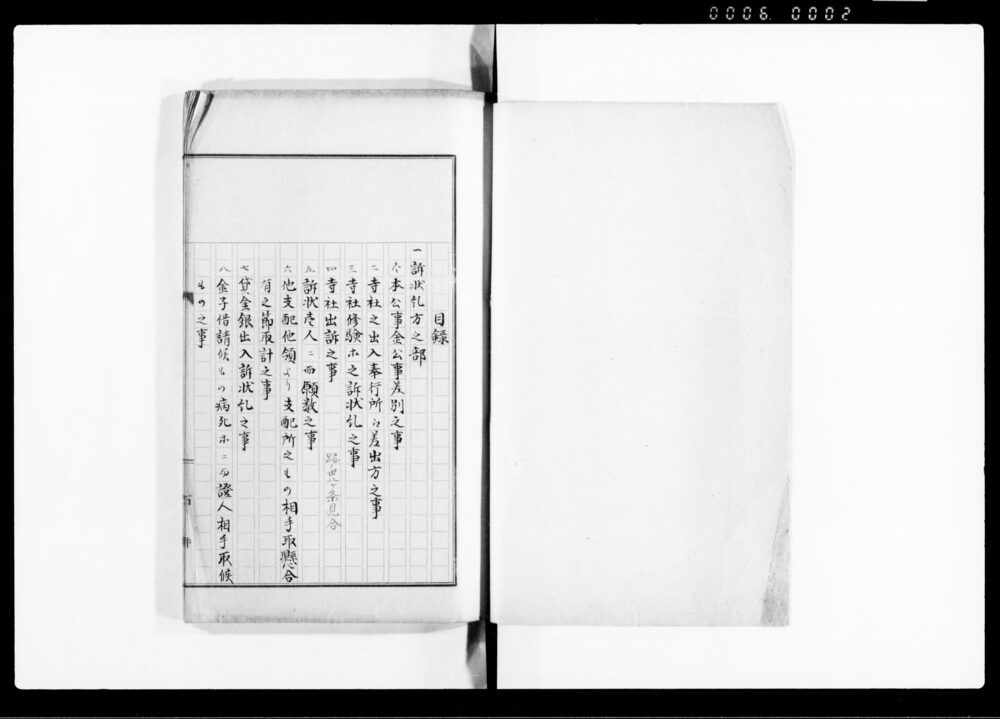 0006 0002
目録
一 訴状糺方之部
壱 本公事金公事差別之事
二 寺社之出入奉行所江差出方之事
三 寺社修験ホ之訴状糺之事
四 寺社出訴之事
五 訴状壱人ニ而願数之事
六 他支配他領より支配所之もの相手取懸合
有之節取計之事
七 貸金銀出入訴状糺之事
八 金子借請候もの病死ホニ而證人相手取候
もの之事